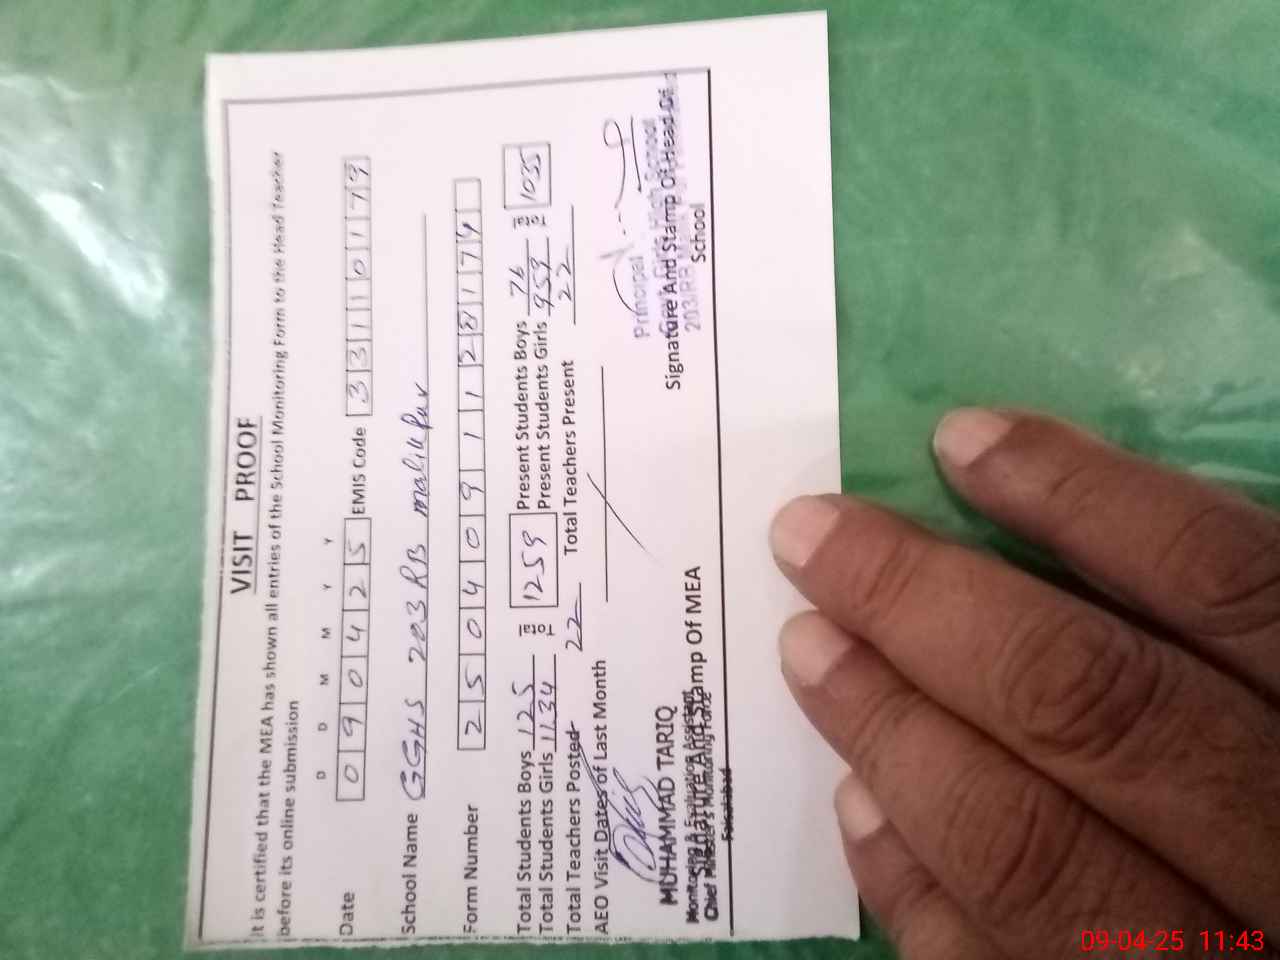 VISIT PROOF
It is certified that the MEA has shown all entries of the School Monitoring Form to the Head Teacher
before its online submission
D D M M Y Y
Date 090425 EMIS Code 33110179
School Name GGHS 203 RB malikpur
Form Number 2504091128174
Total Students Boys 125 Present Students Boys 76
Total Students Girls 1134 1259 Present Students Girls 959 1035
Total Teachers Posted 22 Total Teachers Present 22
AEO Visit Dates of Last Month
MUHAMMAD TARIQ
Monitoring & Evaluation Assistant
Signature And Stamp Of MEA
Chief Minister's Monitoring Force
Faisalabad
Principal
Govt. Girls High School
Signature And Stamp Of Head Of
203/RB
School
09-04-25 11:43